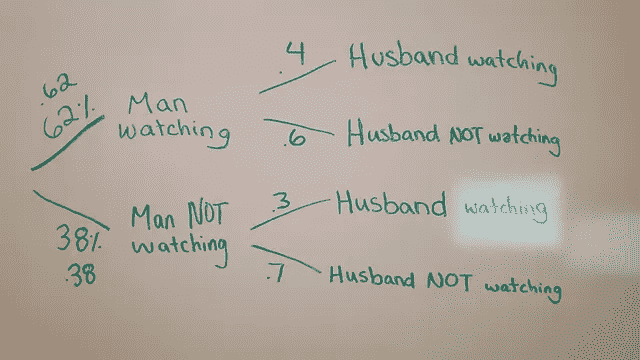 .62
62%
Man
watching
.4
Husband watching
.6
Husband NOT watching
38%
.38
Man NOT
watching
.3
Husband watching
.7
Husband NOT watching